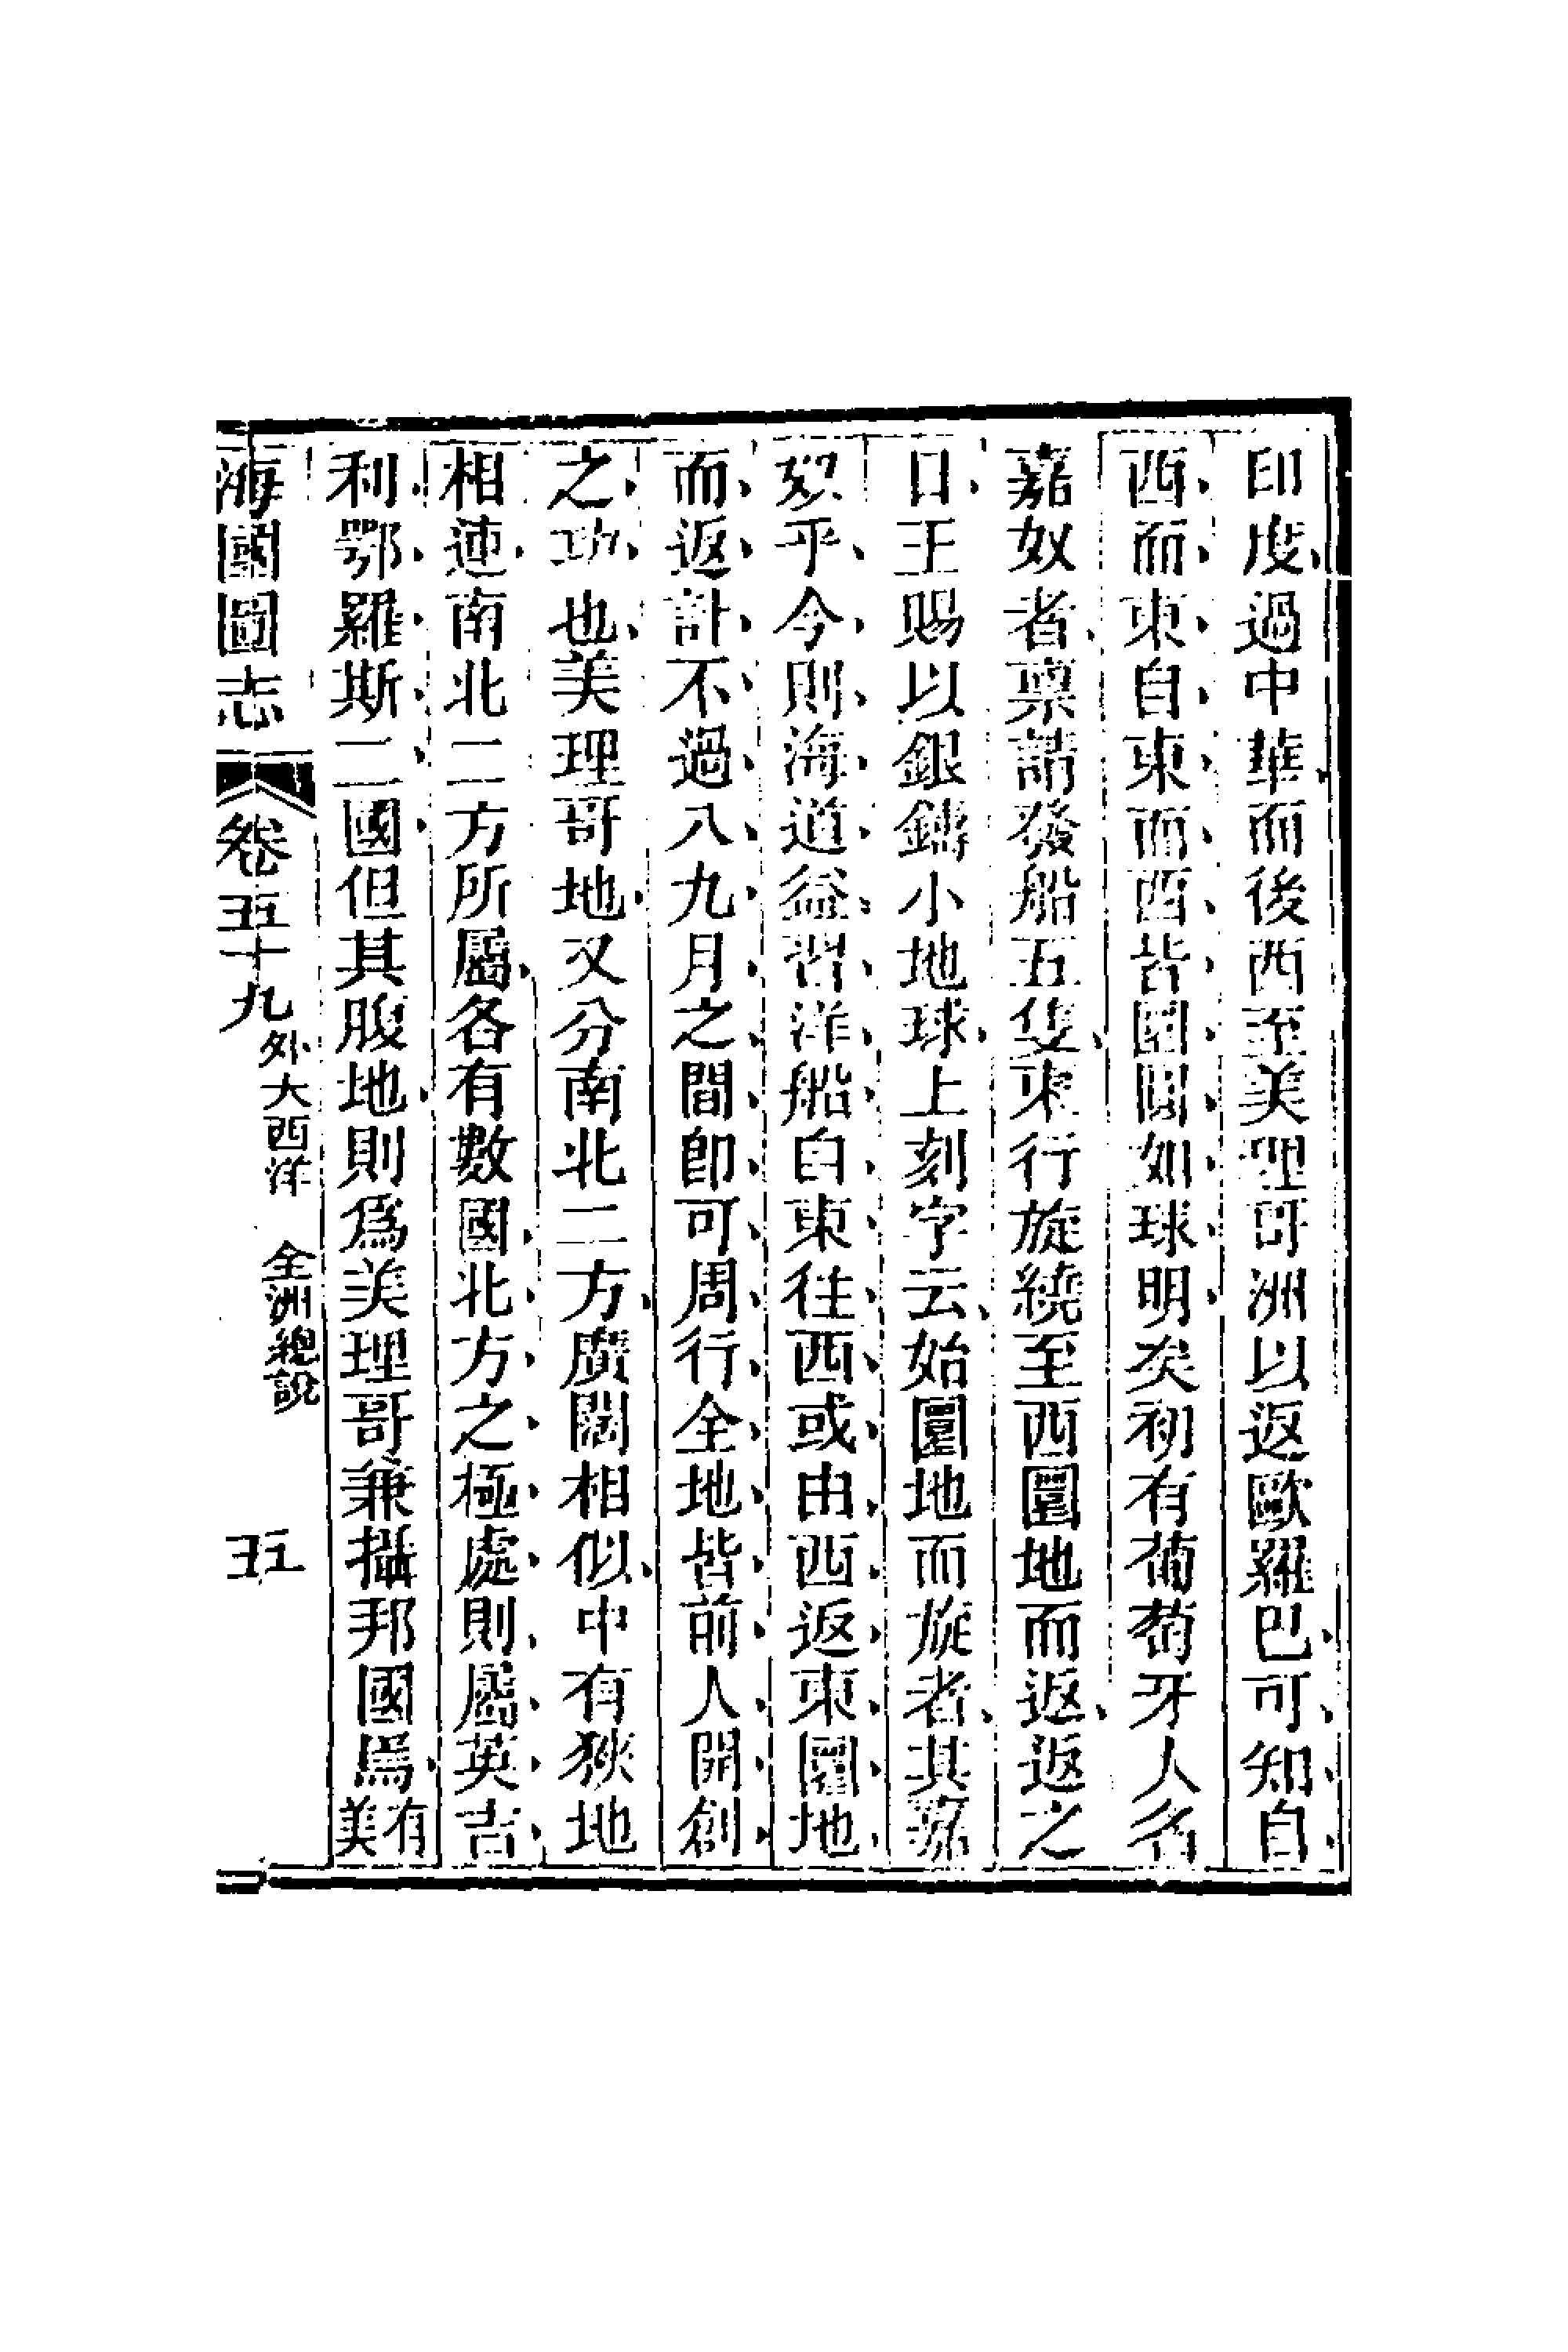 印度過中華而後西至美理哥洲以返歐羅巴可知自
西而東自東而西皆團圓如球明矣初有葡萄牙人名
嘉奴者稟請發船五隻東行旋繞至西圜地而返返之
日王賜以銀鑄小地球上刻字云始圜地而旋者其嘉
奴乎今則海道益習洋船自東往西或由西返東圜地
而返計不過八九月之間即可周行全地皆前人開創
之功也美理哥地又分南北二方廣闊相似中有狹地
相連南北二方所屬各有數國北方之極處則屬英吉
利鄂羅斯二國但其腹地則爲美理哥兼攝邦國爲有
美
海國圖志 卷五十九 外大西洋 全洲總說 五